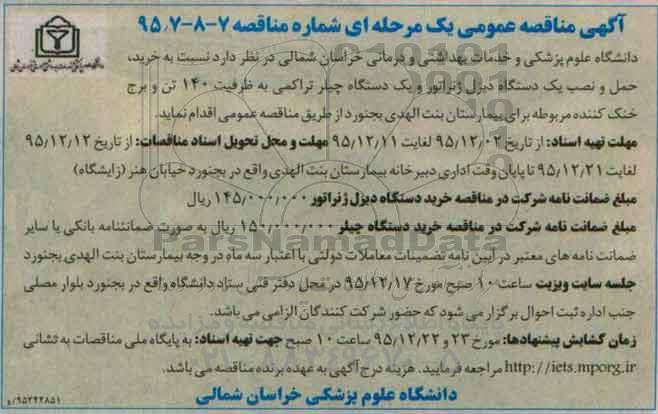 آگهی مناقصه عمومی یک مرحله ای شماره مناقصه ۷-۸-۹۵٫۷
دانشگاه علوم پزشکی و خدمات بهداشتی و درمانی خراسان شمالی در نظر دارد نسبت به خرید،
حمل و نصب یک دستگاه دیزل ژنراتور و یک دستگاه چیلر تراکمی به ظرفیت ۱۴۰ تن و برج
خنک کننده مربوطه برای بیمارستان بنت الهدی بجنورد از طریق مناقصه عمومی اقدام نماید.
مهلت تهیه اسناد: از تاریخ ۹۵/۱۲/۰۲ لغایت ۹۵/۱۲/۱۱ مهلت و محل تحویل اسناد مناقصات: از تاریخ ۹۵/۱۲/۱۲
لغایت ۹۵/۱۲/۲۱ تا پایان وقت اداری دبیرخانه بیمارستان بنت الهدی واقع در بجنورد خیابان هنر (زایشگاه)
مبلغ ضمانت نامه شرکت در مناقصه خرید دستگاه دیزل ژنراتور ۱۴۵/۰۰۰/۰۰۰ ریال
مبلغ ضمانت نامه شرکت در مناقصه خرید دستگاه چیلر ۱۵۰/۰۰۰/۰۰۰ ریال به صورت ضمانتنامه بانکی یا سایر
ضمانت نامه های معتبر در آیین نامه تضمینات معاملات دولتی با اعتبار سه ماه در وجه بیمارستان بنت الهدی بجنورد
جلسه سایت ویزیت ساعت ۱۰ صبح مورخ ۹۵/۱۲/۱۷ در محل دفتر فنی ستاد دانشگاه واقع در بجنورد بلوار مصلی
جنب اداره ثبت احوال برگزار می شود که حضور شرکت کنندگان الزامی می باشد.
زمان گشایش پیشنهادها: مورخ ۲۳ و ۹۵/۱۲/۲۲ ساعت ۱۰ صبح جهت تهیه اسناد: به پایگاه ملی مناقصات به نشانی
http://iets.mporg.ir مراجعه فرمایید. هزینه درج آگهی به عهده برنده مناقصه می باشد.
دانشگاه علوم پزشکی خراسان شمالی
۹۵۲۴۲۸۵۱/و
ParsNamadData